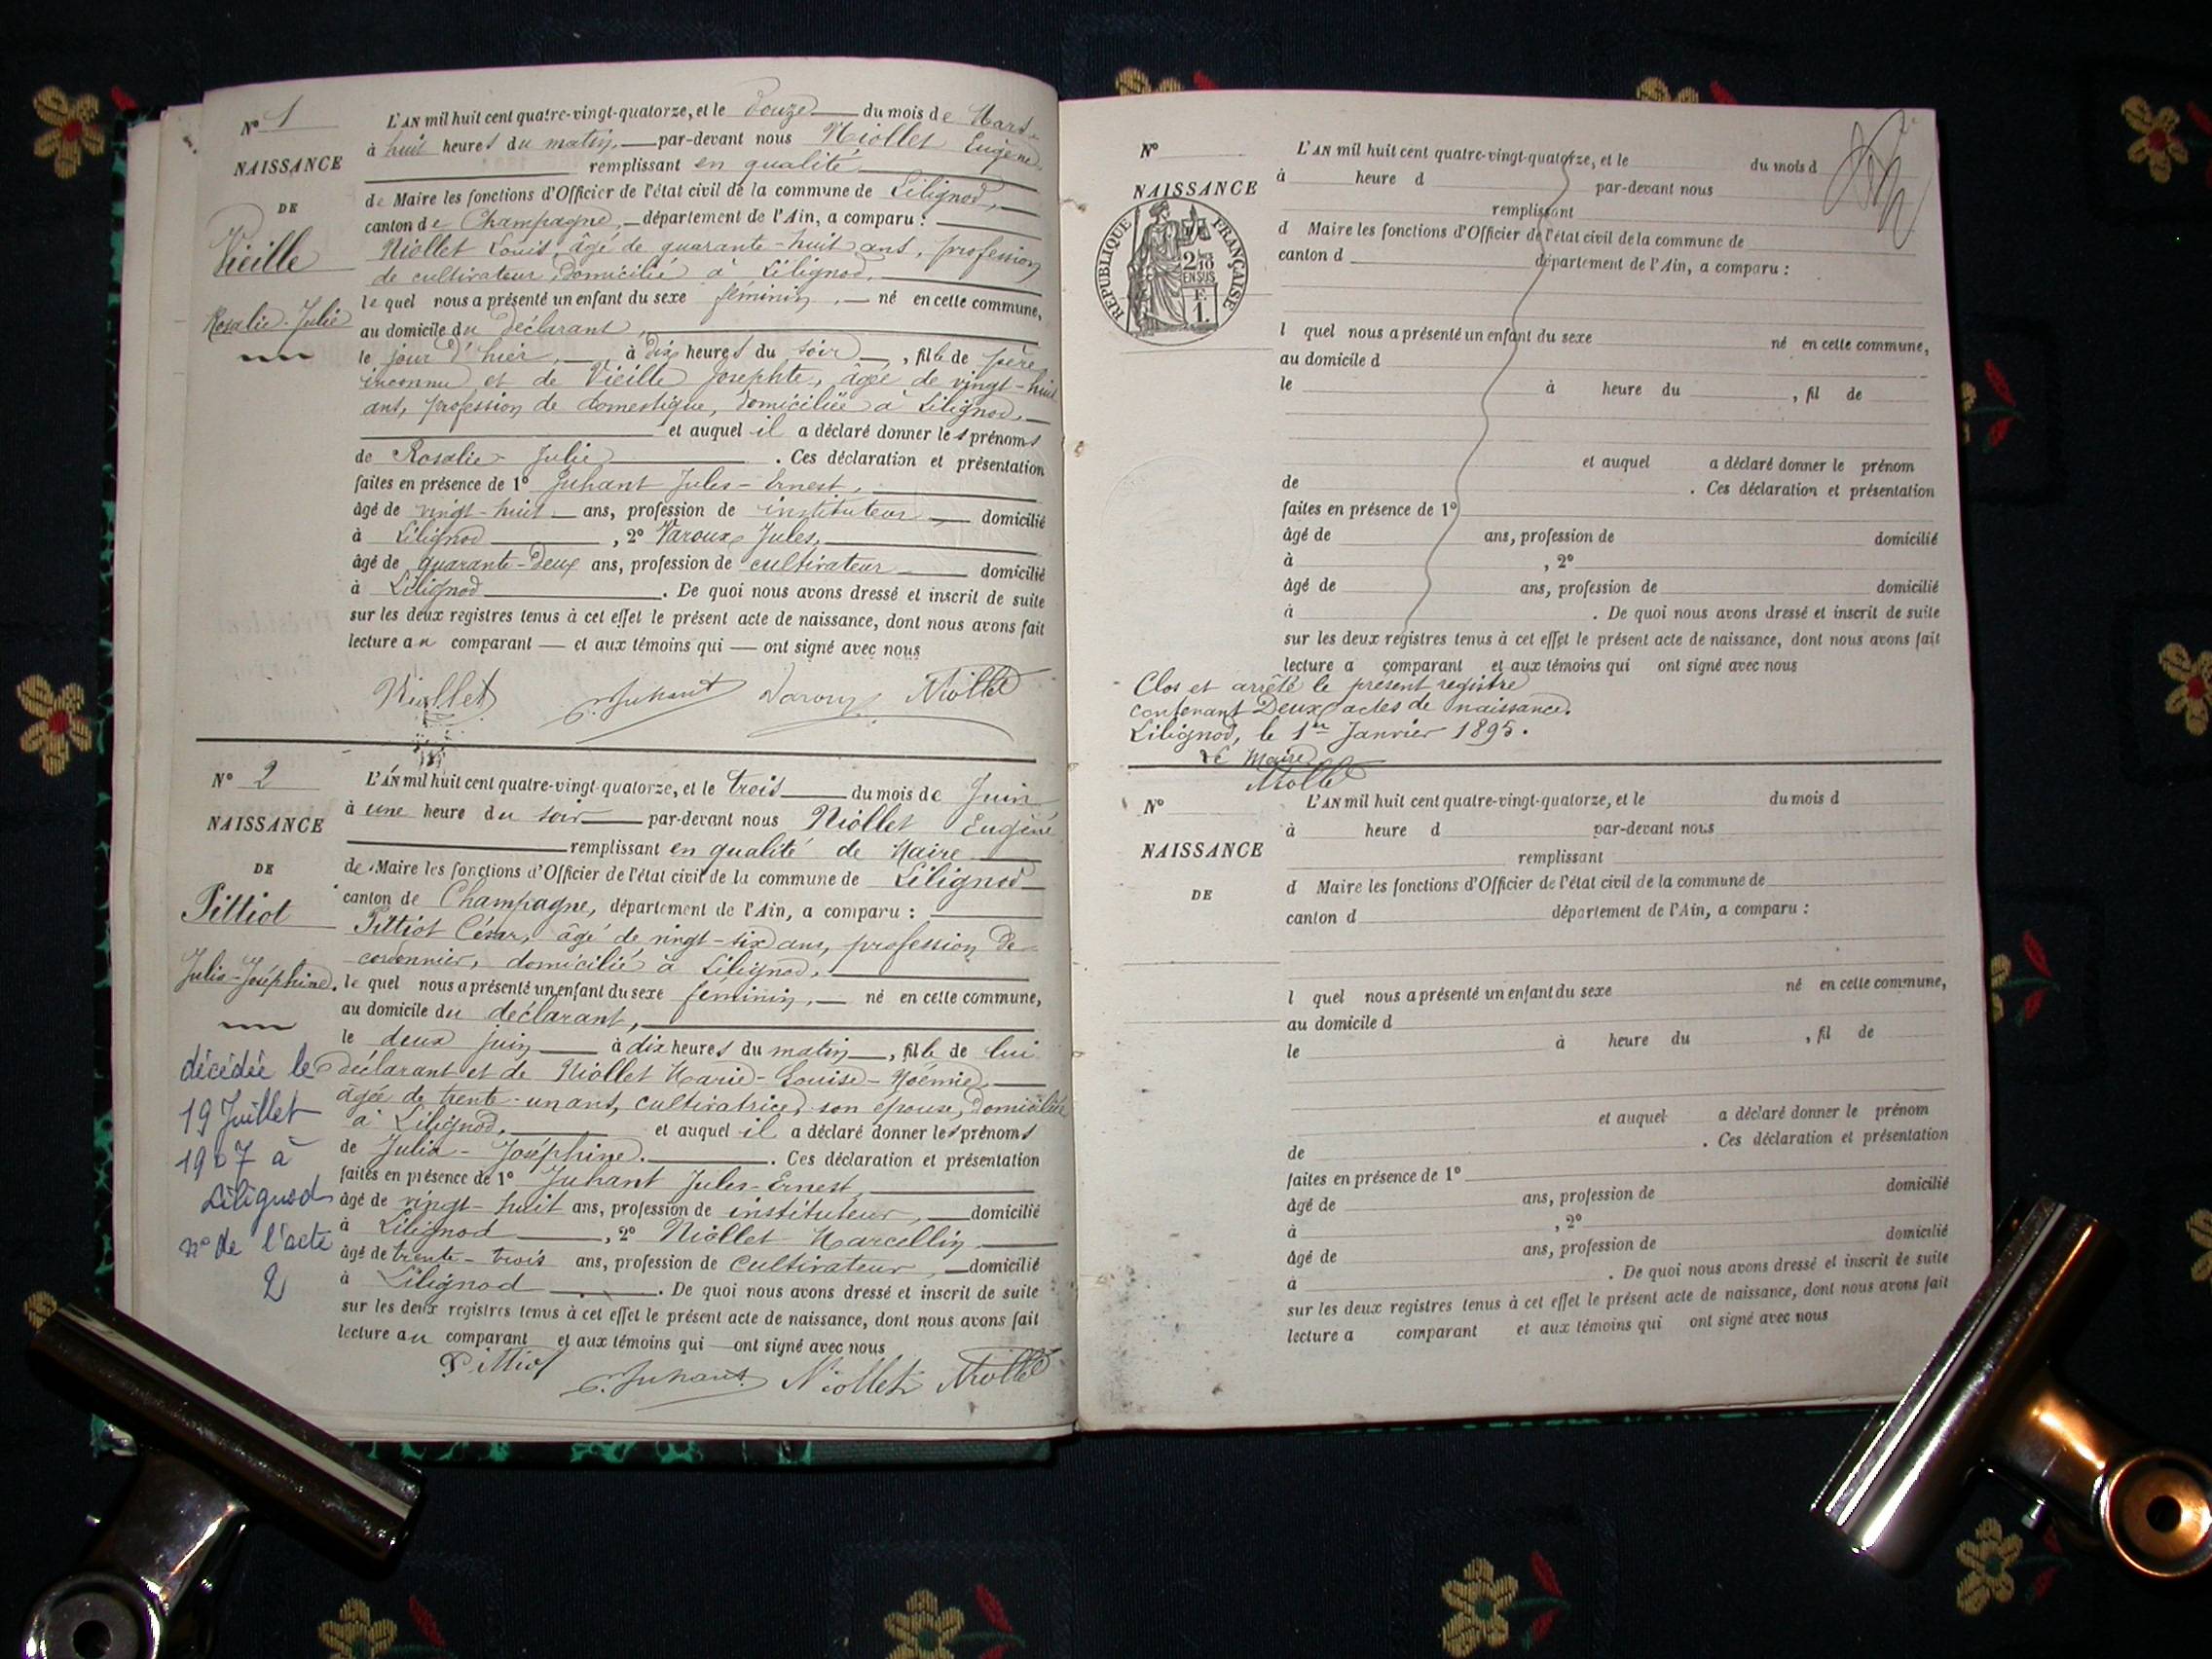 N° 1
NAISSANCE
DE
Vieille
Rosalie-Julie
L'AN mil huit cent quatre-vingt-quatorze, et le douze du mois de Mars
à huit heures du matin, par-devant nous Niollet Eugène
remplissant en qualité
de Maire les fonctions d'Officier de l'état civil de la commune de Lilignod,
canton de Champagne, département de l'Ain, a comparu :
Niollet Louis, âgé de quarante-huit ans, profession
de cultivateur, domicilié à Lilignod,
lequel nous a présenté un enfant du sexe féminin, né en cette commune,
au domicile du déclarant,
le jour d'hier, à dix heures du soir, fille de père
inconnu et de Vieille Josephte, âgée de vingt-huit
ans, profession de domestique, domiciliée à Lilignod,
et auquel il a déclaré donner les prénoms
de Rosalie-Julie. Ces déclaration et présentation
faites en présence de 1° Juhant Jules-Ernest,
âgé de vingt-huit ans, profession de instituteur, domicilié
à Lilignod, 2° Varoux Jules,
âgé de quarante-deux ans, profession de cultivateur domicilié
à Lilignod. De quoi nous avons dressé et inscrit de suite
sur les deux registres tenus à cet effet le présent acte de naissance, dont nous avons fait
lecture au comparant et aux témoins qui ont signé avec nous
Niollet Juhant Varoux Niollet
N° 2
NAISSANCE
DE
Pittiot
Julia-Joséphine.
décédée le
19 Juillet
1907 à
Lilignod
n° de l'acte
2
L'AN mil huit cent quatre-vingt-quatorze, et le trois du mois de Juin
à une heure du soir par-devant nous Niollet Eugène
remplissant en qualité de Maire
de Maire les fonctions d'Officier de l'état civil de la commune de Lilignod
canton de Champagne, département de l'Ain, a comparu :
Pittiot César, âgé de vingt-six ans, profession de
cordonnier, domicilié à Lilignod,
lequel nous a présenté un enfant du sexe féminin, né en cette commune,
au domicile du déclarant,
le deux juin à dix heures du matin, fille de lui
déclarant et de Niollet Marie-Louise-Noémie,
âgée de trente-un ans, cultivatrice, son épouse, domiciliée
à Lilignod, et auquel il a déclaré donner les prénoms
de Julia-Joséphine. Ces déclaration et présentation
faites en présence de 1° Juhant Jules-Ernest,
âgé de vingt-huit ans, profession de instituteur, domicilié
à Lilignod, 2° Niollet Marcellin,
âgé de trente-trois ans, profession de cultivateur, domicilié
à Lilignod. De quoi nous avons dressé et inscrit de suite
sur les deux registres tenus à cet effet le présent acte de naissance, dont nous avons fait
lecture au comparant et aux témoins qui ont signé avec nous
Pittiot Juhant Niollet Niollet
N°
NAISSANCE
RÉPUBLIQUE FRANÇAISE
2/10
EN SUS
F.
1.
L'AN mil huit cent quatre-vingt-quatorze, et le du mois d
à heure d par-devant nous
remplissant
d Maire les fonctions d'Officier de l'état civil de la commune de
canton d département de l'Ain, a comparu :
l quel nous a présenté un enfant du sexe né en cette commune,
au domicile d
le à heure du , fil de
et auquel a déclaré donner le prénom
de . Ces déclaration et présentation
faites en présence de 1°
âgé de ans, profession de domicilié
à , 2°
âgé de ans, profession de domicilié
à . De quoi nous avons dressé et inscrit de suite
sur les deux registres tenus à cet effet le présent acte de naissance, dont nous avons fait
lecture a comparant et aux témoins qui ont signé avec nous
Clos et arrêté le présent registre
contenant Deux actes de naissance.
Lilignod, le 1er Janvier 1895.
Le Maire
Niollet
N°
NAISSANCE
DE
L'AN mil huit cent quatre-vingt-quatorze, et le du mois d
à heure d par-devant nous
remplissant
d Maire les fonctions d'Officier de l'état civil de la commune de
canton d département de l'Ain, a comparu :
l quel nous a présenté un enfant du sexe né en cette commune,
au domicile d
le à heure du , fil de
et auquel a déclaré donner le prénom
de . Ces déclaration et présentation
faites en présence de 1°
âgé de ans, profession de domicilié
à , 2°
âgé de ans, profession de domicilié
à . De quoi nous avons dressé et inscrit de suite
sur les deux registres tenus à cet effet le présent acte de naissance, dont nous avons fait
lecture a comparant et aux témoins qui ont signé avec nous